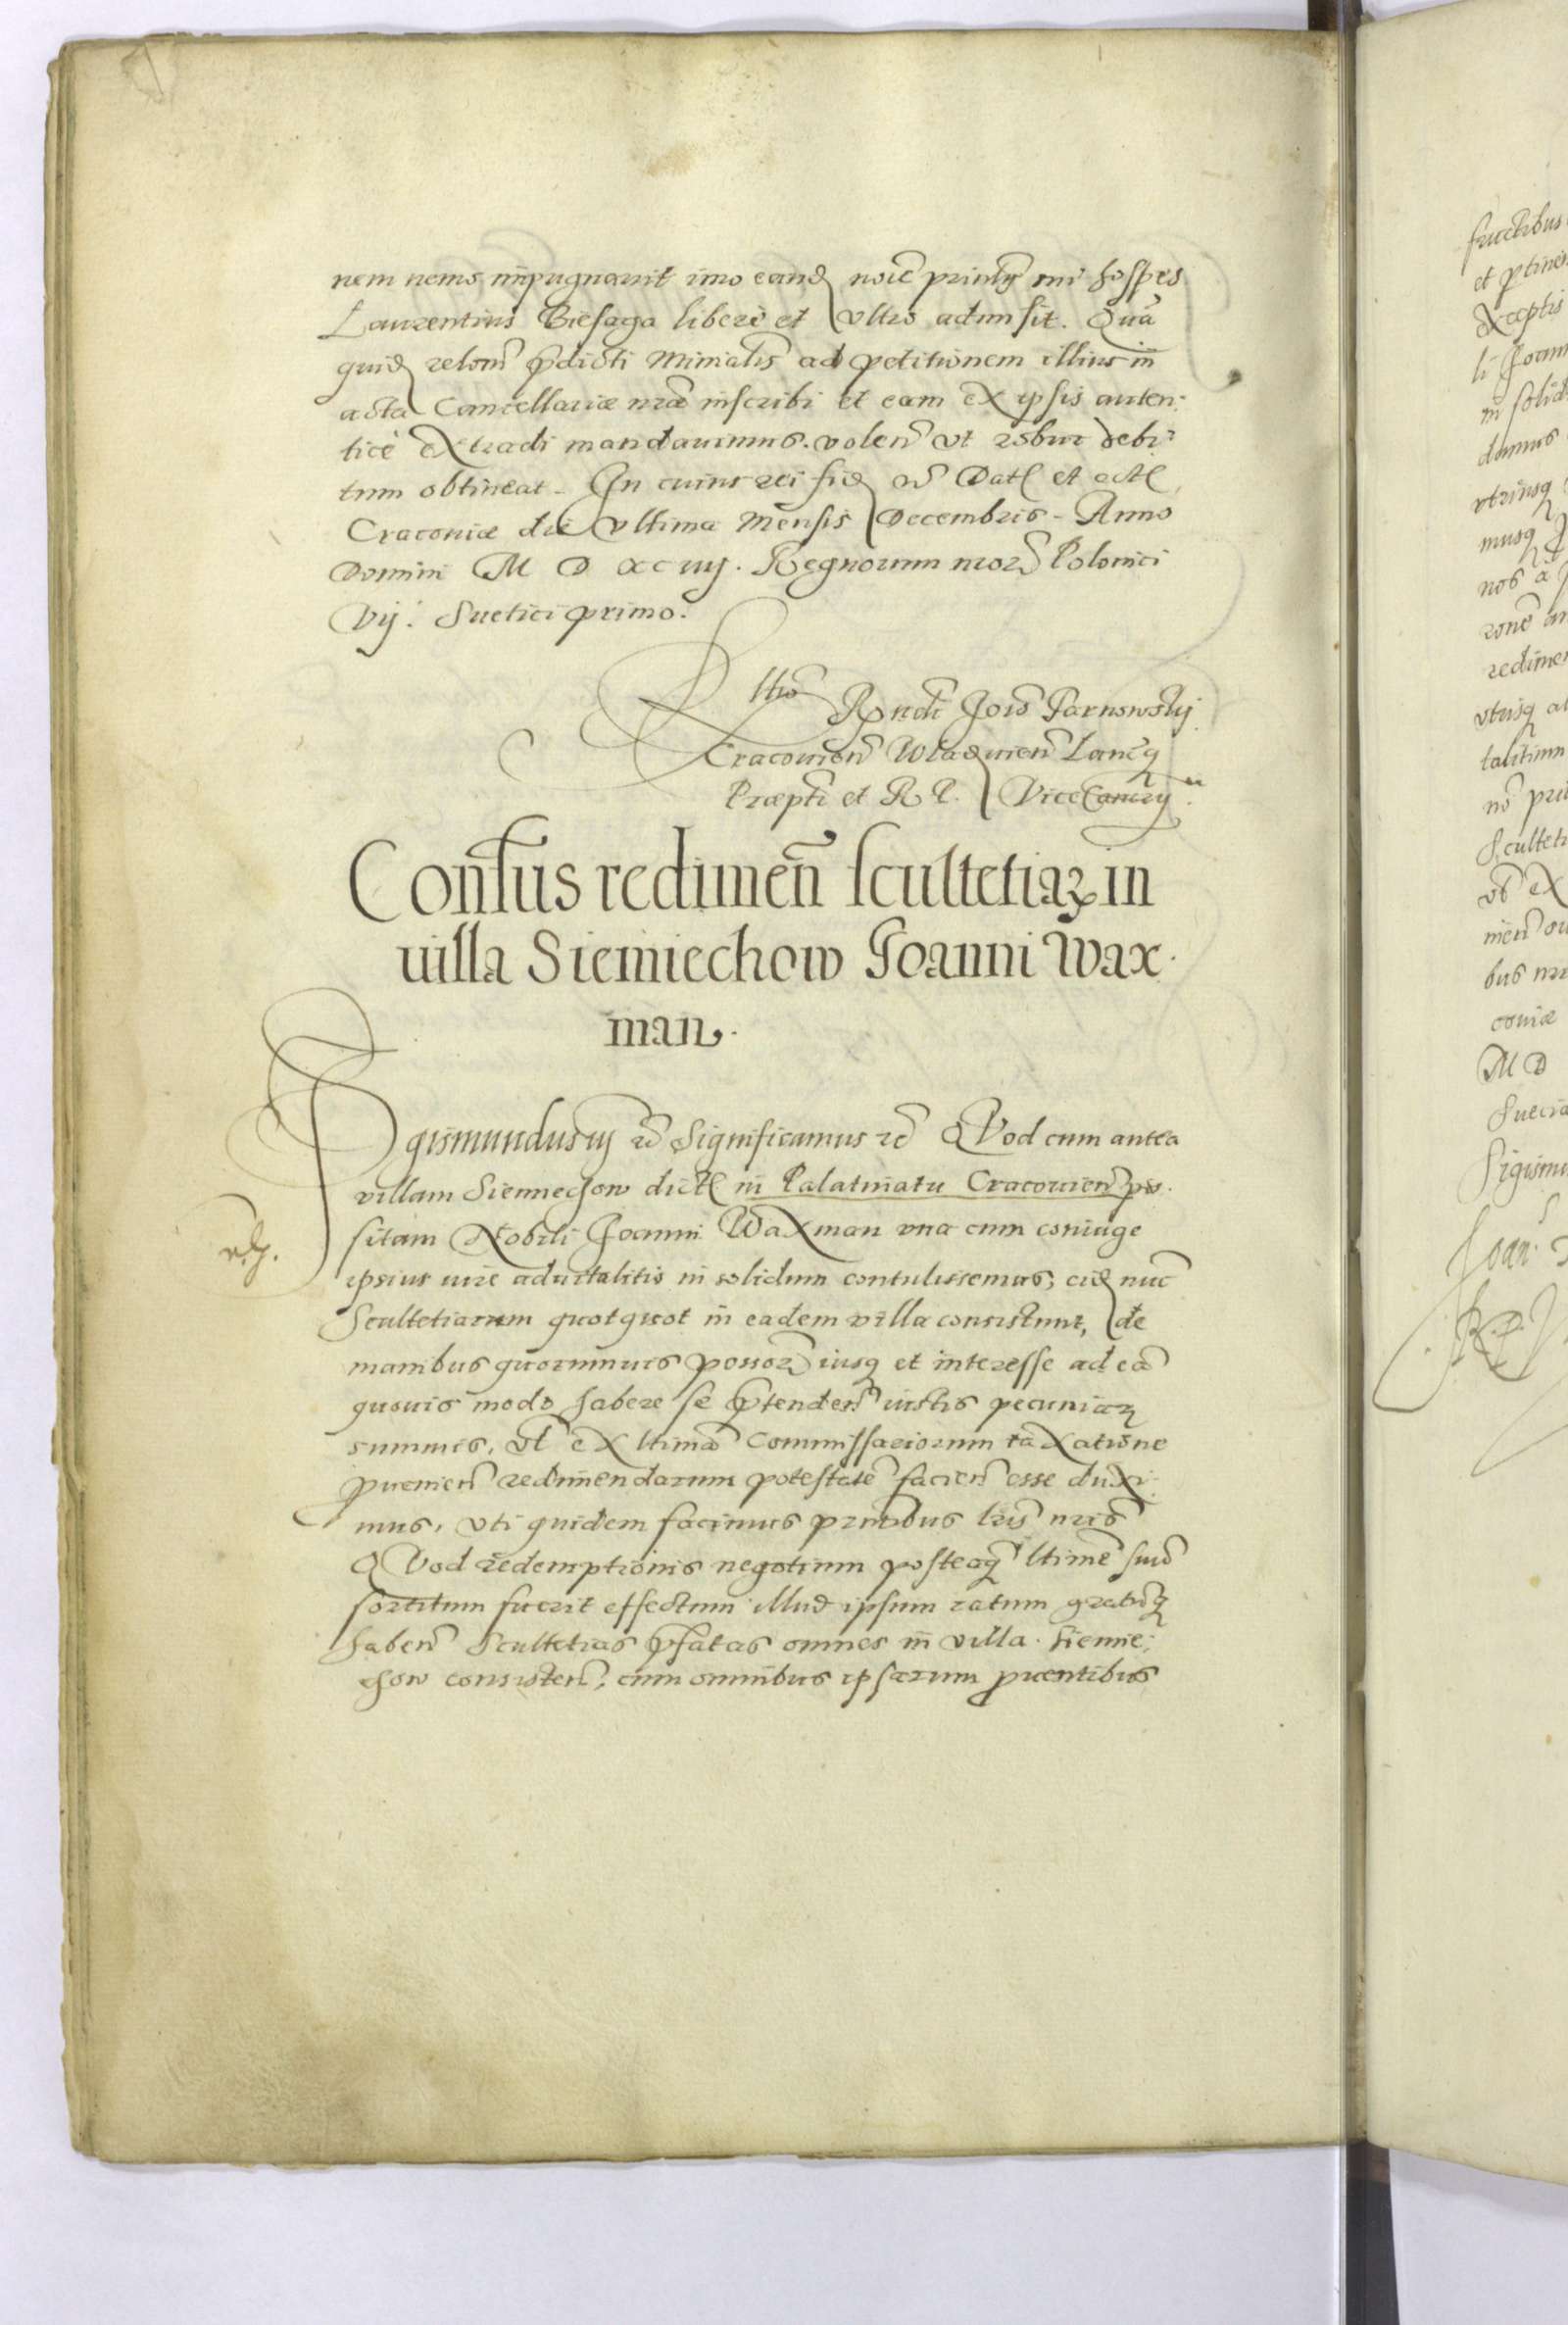 nem nemo impugnavit imo eand noie hospes
Laurentius Biesaga liberè et ultro admisit. Quā
quid reloñ p̄dicti Minialis ad petitionem illius in
acta Cancellariæ nr̄æ inscribi et eam ex ipsis auten:
ticè extradi mandavimus. volen̄ ut robur debi:
tum obtineat. In cuius rei fid Dat et act
Cracoviæ die ultima Mensis Decembris. Anno
Domini M D XCIIIJ. Regnorum nror̄ Polonici
Vij. Suetici primo.
Rndi Jois Tarnowskij
Cracovien̄ Wladvien̄ Lancic
Præpti et R P. Vice Cancrij
Consūs redimen̄ scultetiaꝝ in
villa Siemiechow Joanni Wax.
man.
Sigismundus iij rc̄ Significamus rc̄ QVod cum antea
villam Siemiechow dict in Palatinatu Cracovien̄ po.
sitam Nobili Joanni Waxman una cum coniuge
ipsius iure advitalitio in solidum contulissemus; eid nuc̄
Scultetiarum quotquot in eadem villa consistunt, de
manibus quorumvis possor̄ iusq et interesse ad eā
quovis modo habere se p̄tenden̄ iustis pecuniaꝝ
summis, vl̄ ex ltimā Commissariorum taxatione
pvenien̄ redimendarum potestatē facien̄ esse duxi:
mus, uti quidem facimus prntibus lris nris
QVod redemptionis negotium posteaq̄ ltimē suū
sortitum fuerit effectum illud ipsum ratum gratūq
haben̄ Scultetias p̄fatas omnes in villa Siemie:
chow consisten̄, cum omnibus ipsarum pventibus
fructibus
et ptinen
exceptis
li Joann
in solid
damus
utriusq
musq
nos a
rone an
redimen
utusq
talitium
nō
Scultet
vb ex
mēn
bus nr
coviæ
M D
Suecia
Sigismu
Joan